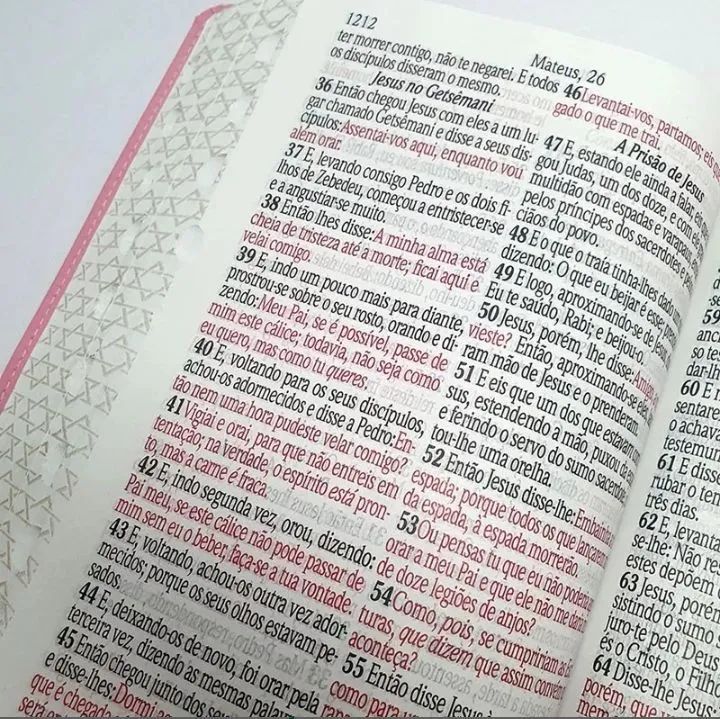 1212
Mateus, 26
ter morrer contigo, não te negarei. E todos
os discípulos disseram o mesmo.
Jesus no Getsêmani
36 Então chegou Jesus com eles a um lu-
gar chamado Getsêmani e disse a seus dis-
cípulos: Assentai-vos aqui, enquanto vou
além orar.
37 E, levando consigo Pedro e os dois fi-
lhos de Zebedeu, começou a entristecer-se
e a angustiar-se muito.
38 Então lhes disse: A minha alma está
cheia de tristeza até a morte; ficai aqui e
velai comigo.
39 E, indo um pouco mais para diante,
prostrou-se sobre o seu rosto, orando e di-
zendo: Meu Pai, se é possível, passe de
mim este cálice; todavia, não seja como
eu quero, mas como tu queres.
40 E, voltando para os seus discípulos,
achou-os adormecidos e disse a Pedro: En-
tão nem uma hora pudeste velar comigo?
41 Vigiai e orai, para que não entreis em
tentação; na verdade, o espírito está pron-
to, mas a carne é fraca.
42 E, indo segunda vez, orou, dizendo:
Pai meu, se este cálice não pode passar de
mim sem eu o beber, faça-se a tua vontade.
43 E, voltando, achou-os outra vez ador-
mecidos; porque os seus olhos estavam pe-
sados.
44 E, deixando-os de novo, foi orar pela
terceira vez, dizendo as mesmas palavras.
45 Então chegou junto dos seus
e disse-lhes: Dormi
que é chegada
será
46 Levantai-vos, partamos; eis que
gado o que me trai.
A Prisão de Jesus
47 E, estando ele ainda a falar, eis
gou Judas, um dos doze, e com ele
multidão com espadas e varapaus,
pelos príncipes dos sacerdotes e
ciãos do povo.
48 E o que o traía tinha-lhes dado um
dizendo: O que eu beijar é esse; pren
49 E logo, aproximando-se de Jesus
Eu te saúdo, Rabi; e beijou-o.
50 Jesus, porém, lhe disse: Amigo,
vieste? Então, aproximando-se eles,
ram mão de Jesus e o prenderam.
51 E eis que um dos que estavam
sus, estendendo a mão, puxou da
e ferindo o servo do sumo sacerdo
tou-lhe uma orelha.
52 Então Jesus disse-lhe: Embainha
espada; porque todos os que lançarem
da espada, à espada morrerão.
53 Ou pensas tu que eu não poderia
orar a meu Pai e que ele não me daria
de doze legiões de anjos?
54 Como, pois, se cumpririam as Es
turas, que dizem que assim convém
aconteça?
55 Então disse Jesus
como para um
60 E
sentarem
o achava
testemun
61 E disse
rubar o tem
três dias.
62 E, levanta
se-lhe: Não res
estes depõem
63 Jesus, porém
sistindo o sumo
juro-te pelo Deus
és o Cristo, o Filho
64 Disse-lhe Jesus
porém, que